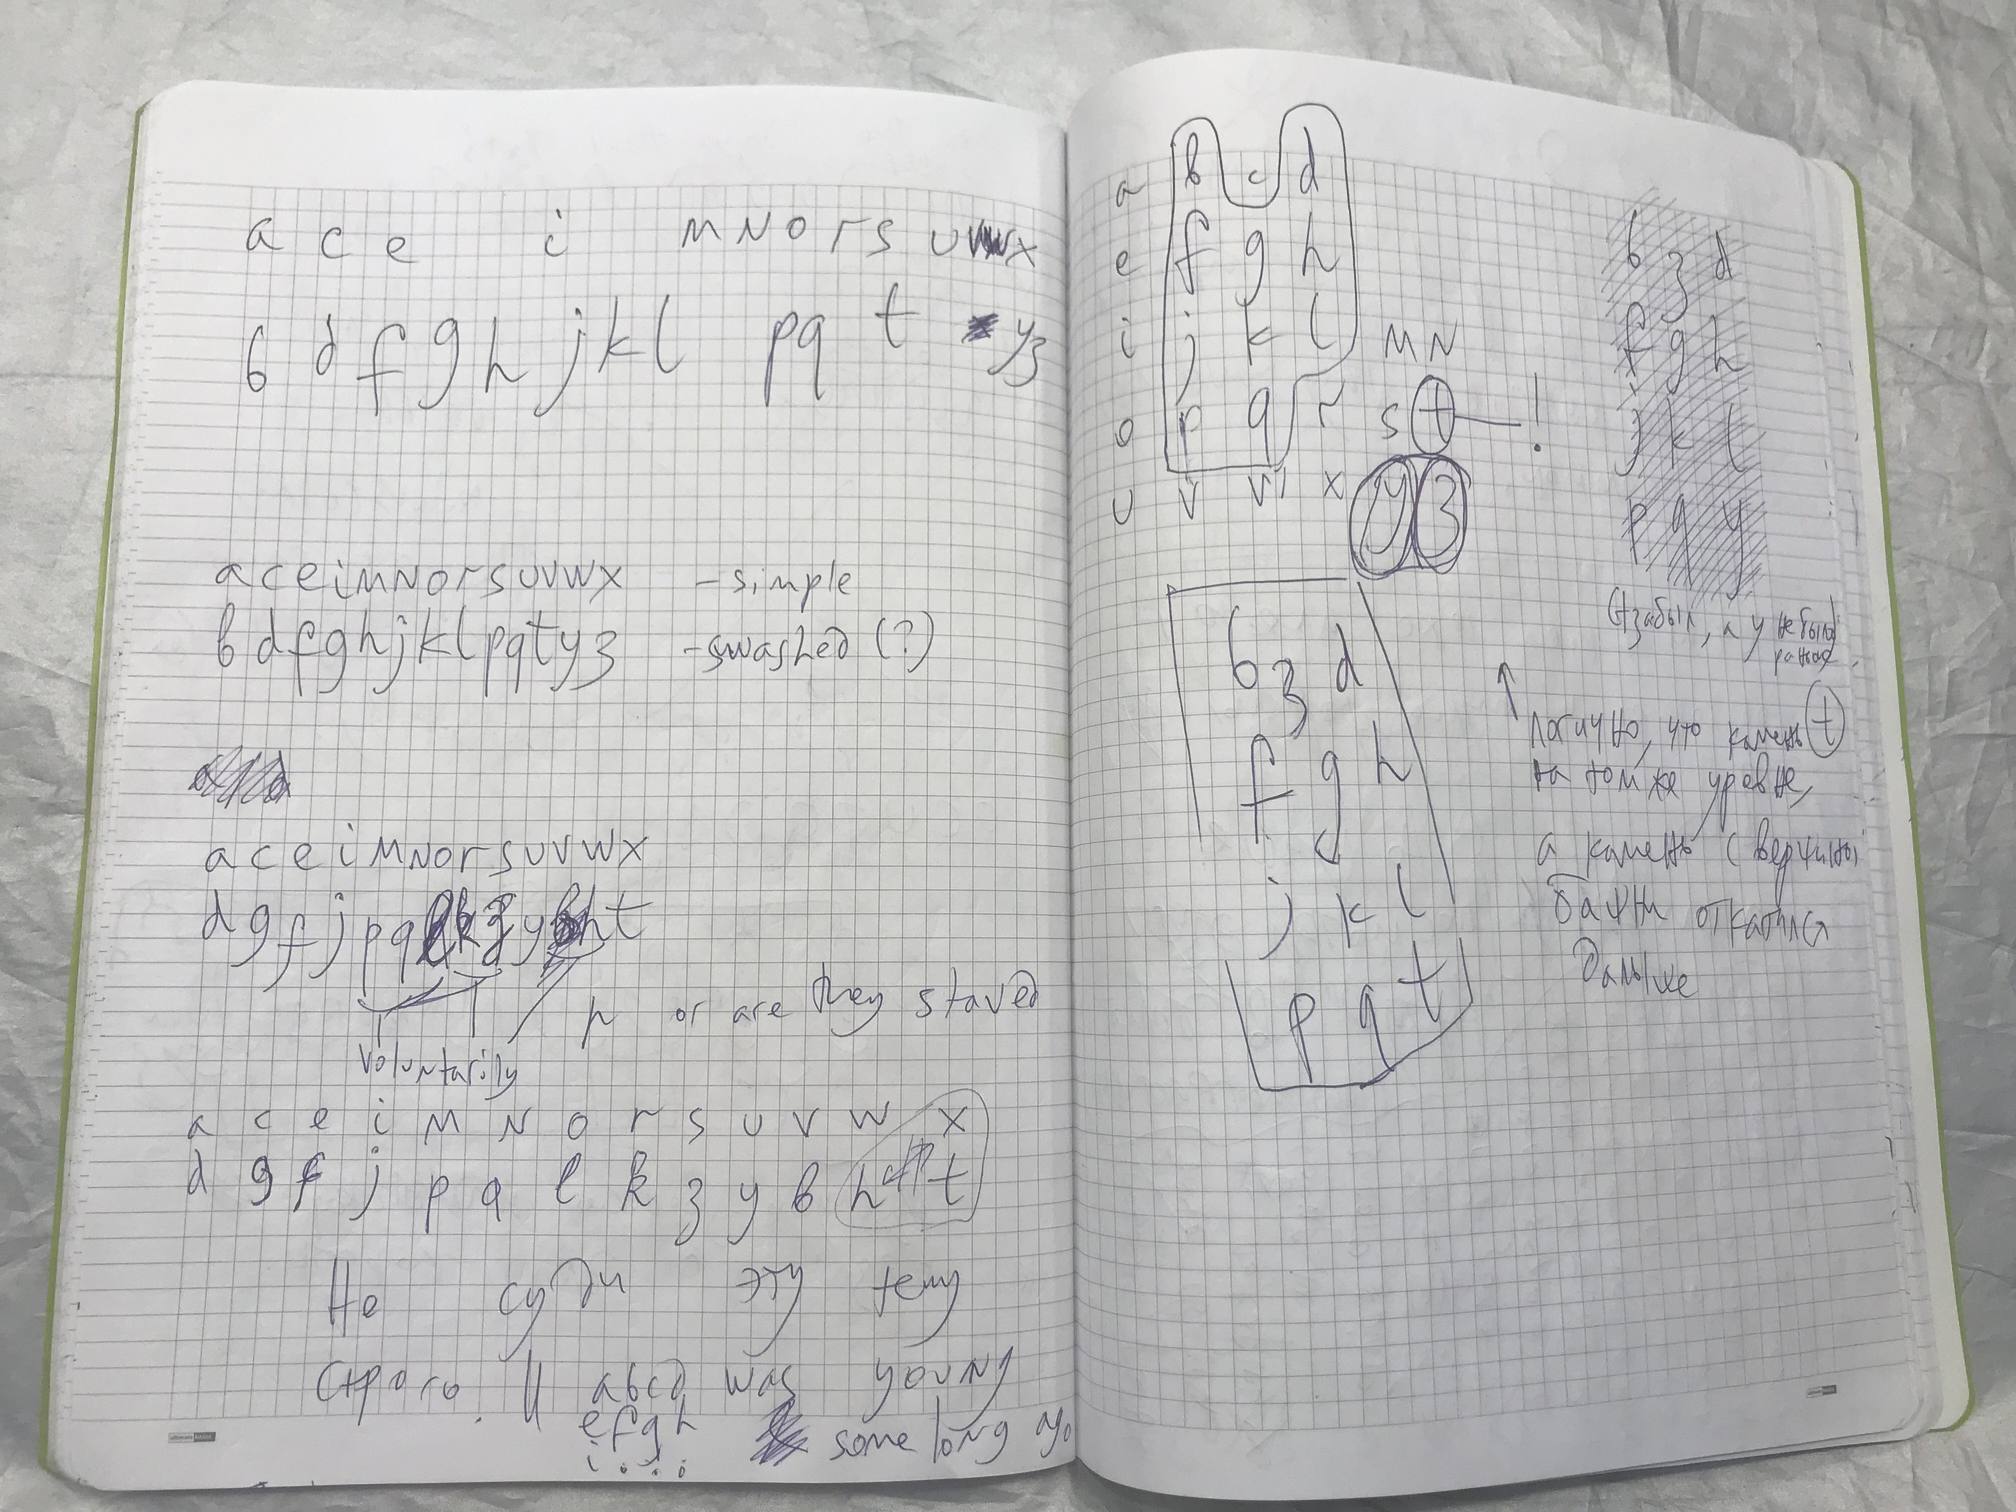 a c e i m n o r s u v w x
b d f g h j k l p q t y z
a c e i m n o r s u v w x - simple
b d f g h j k l p q t y z - swashed (?)
a c e i m n o r s u v w x
d g f j p q k z y h t
voluntarily
h or are they staved
a c e i m n o r s u v w x
d g f j p q l k z y b h t
Не суди эту тему
строго. И abcd was young
efgh some long ago
i . . .
a b c d
e f g h
i j k l m n
o p q r s t — !
u v w x y z
b z d
f g h
j k l
p q t
b z d
f g h
j k l
p q y
(t забыл, а y не было
раньше
↑ логично, что камень t
на том же уровне,
а камень с вершины
башни откатился
дальше